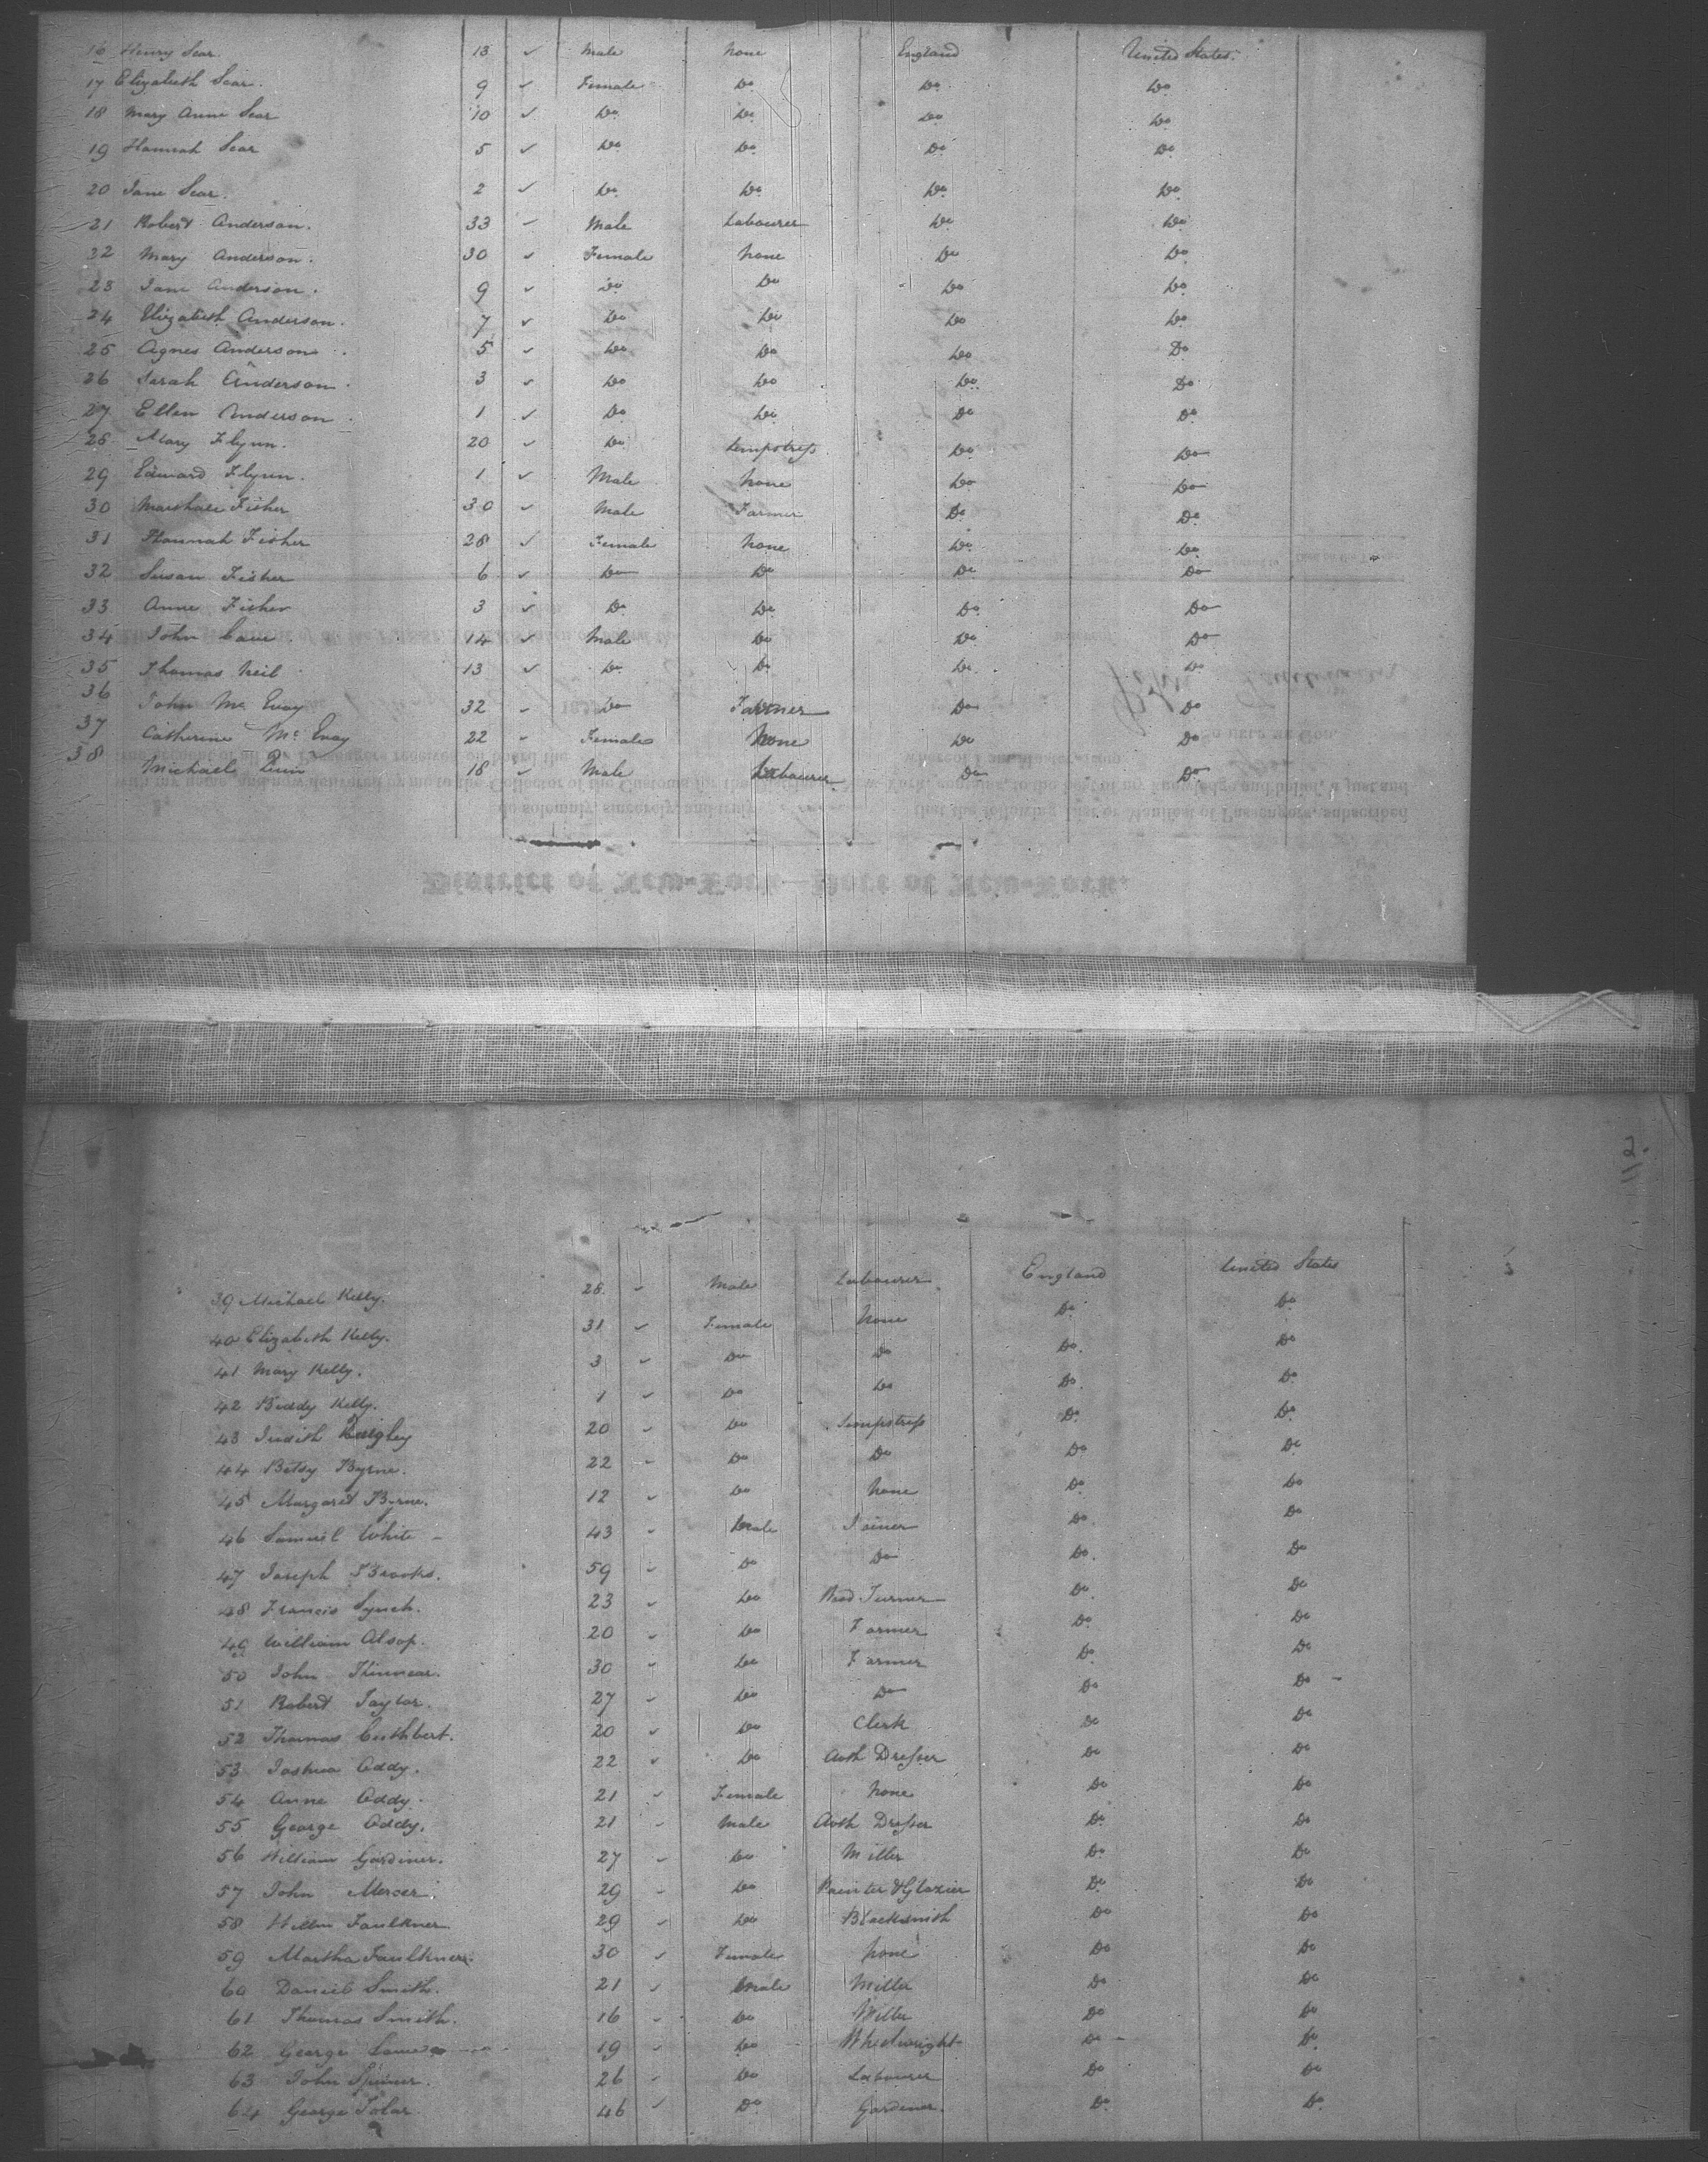 16 Henry Sear 13 ✓ Male None England United States
17 Elizabeth Sear. 9 ✓ Female Do Do Do
18 Mary Anne Sear 10 ✓ Do Do Do Do
19 Hannah Sear 5 ✓ Do Do Do Do
20 Jane Sear. 2 ✓ Do Do Do Do
21 Robert Anderson. 33 ✓ Male Labourer Do Do
32 Mary Anderson. 30 ✓ Female None Do Do
23 Jane Anderson. 9 ✓ Do Do Do Do
24 Elizabeth Anderson. 7 ✓ Do Do Do Do
25 Agnes Anderson 5 ✓ Do Do Do Do
26 Sarah Anderson. 3 ✓ Do Do Do Do
27 Ellen Anderson. 1 ✓ Do Do Do Do
28 Mary Flynn. 20 ✓ Do Sempstress Do Do
29 Edward Flynn. 1 ✓ Male None Do Do
30 Marshall Fisher 30 ✓ Male Farmer Do Do
31 Hannah Fisher 28 ✓ Female None Do Do
32 Susan Fisher 6 ✓ Do Do Do Do
33 Anne Fisher 3 ✓ Do Do Do Do
34 John 14 ✓ Male Do Do Do
35 Thomas Neil 13 ✓ Do Do Do Do
36 John Mc Evoy 32 ✓ Do Farmer Do Do
37 Catherine Mc Evoy 22 ✓ Female None Do Do
38 Michael Quin 18 ✓ Male Labourer Do Do
District of New-York—Port of New-York.
112.
39 Michael Kelly. 28. ✓ Male Labourer England United States
40 Elizabeth Kelly. 31 ✓ Female None Do Do
41 Mary Kelly. 3 ✓ Do Do Do Do
42 Biddy Kelly. 1 ✓ Do Do Do Do
43 Judith 20 ✓ Do Sempstress Do Do
44 Betsy Byrne. 22 ✓ Do Do Do Do
45 Margaret Byrne. 12 ✓ Do None Do Do
46 Samuel White 43 ✓ Male Joiner Do Do
47 Joseph Brooks. 59 ✓ Do Do Do Do
48 Francis Lynch. 23 ✓ Do Turner Do Do
49 William Alsop. 20 ✓ Do Farmer Do Do
50 John Kinnear. 30 ✓ Do Farmer Do Do
51 Robert Taylor. 27 ✓ Do Do Do Do
52 Thomas Cuthbert. 20 ✓ Do Clerk Do Do
53 Joshua Eddy. 22 ✓ Do Cloth Dresser Do Do
54 Anne Eddy. 21 ✓ Female None Do Do
55 George Eddy. 21 ✓ Male Cloth Dresser Do Do
56 William Gardiner. 27 ✓ Do Miller Do Do
57 John Mercer. 29 ✓ Do Painter & Glazier Do Do
58 Willm Faulkner. 29 ✓ Do Blacksmith Do Do
59 Martha Faulkner. 30 ✓ Female None Do Do
60 Daniel Smith. 21 ✓ Male Miller Do Do
61 Thomas Smith. 16 ✓ Do Miller Do Do
62 George 19 ✓ Do Wheelwright Do Do
63 John 26 ✓ Do Labourer Do Do
64 George Tolar. 46 ✓ Do Gardener. Do Do